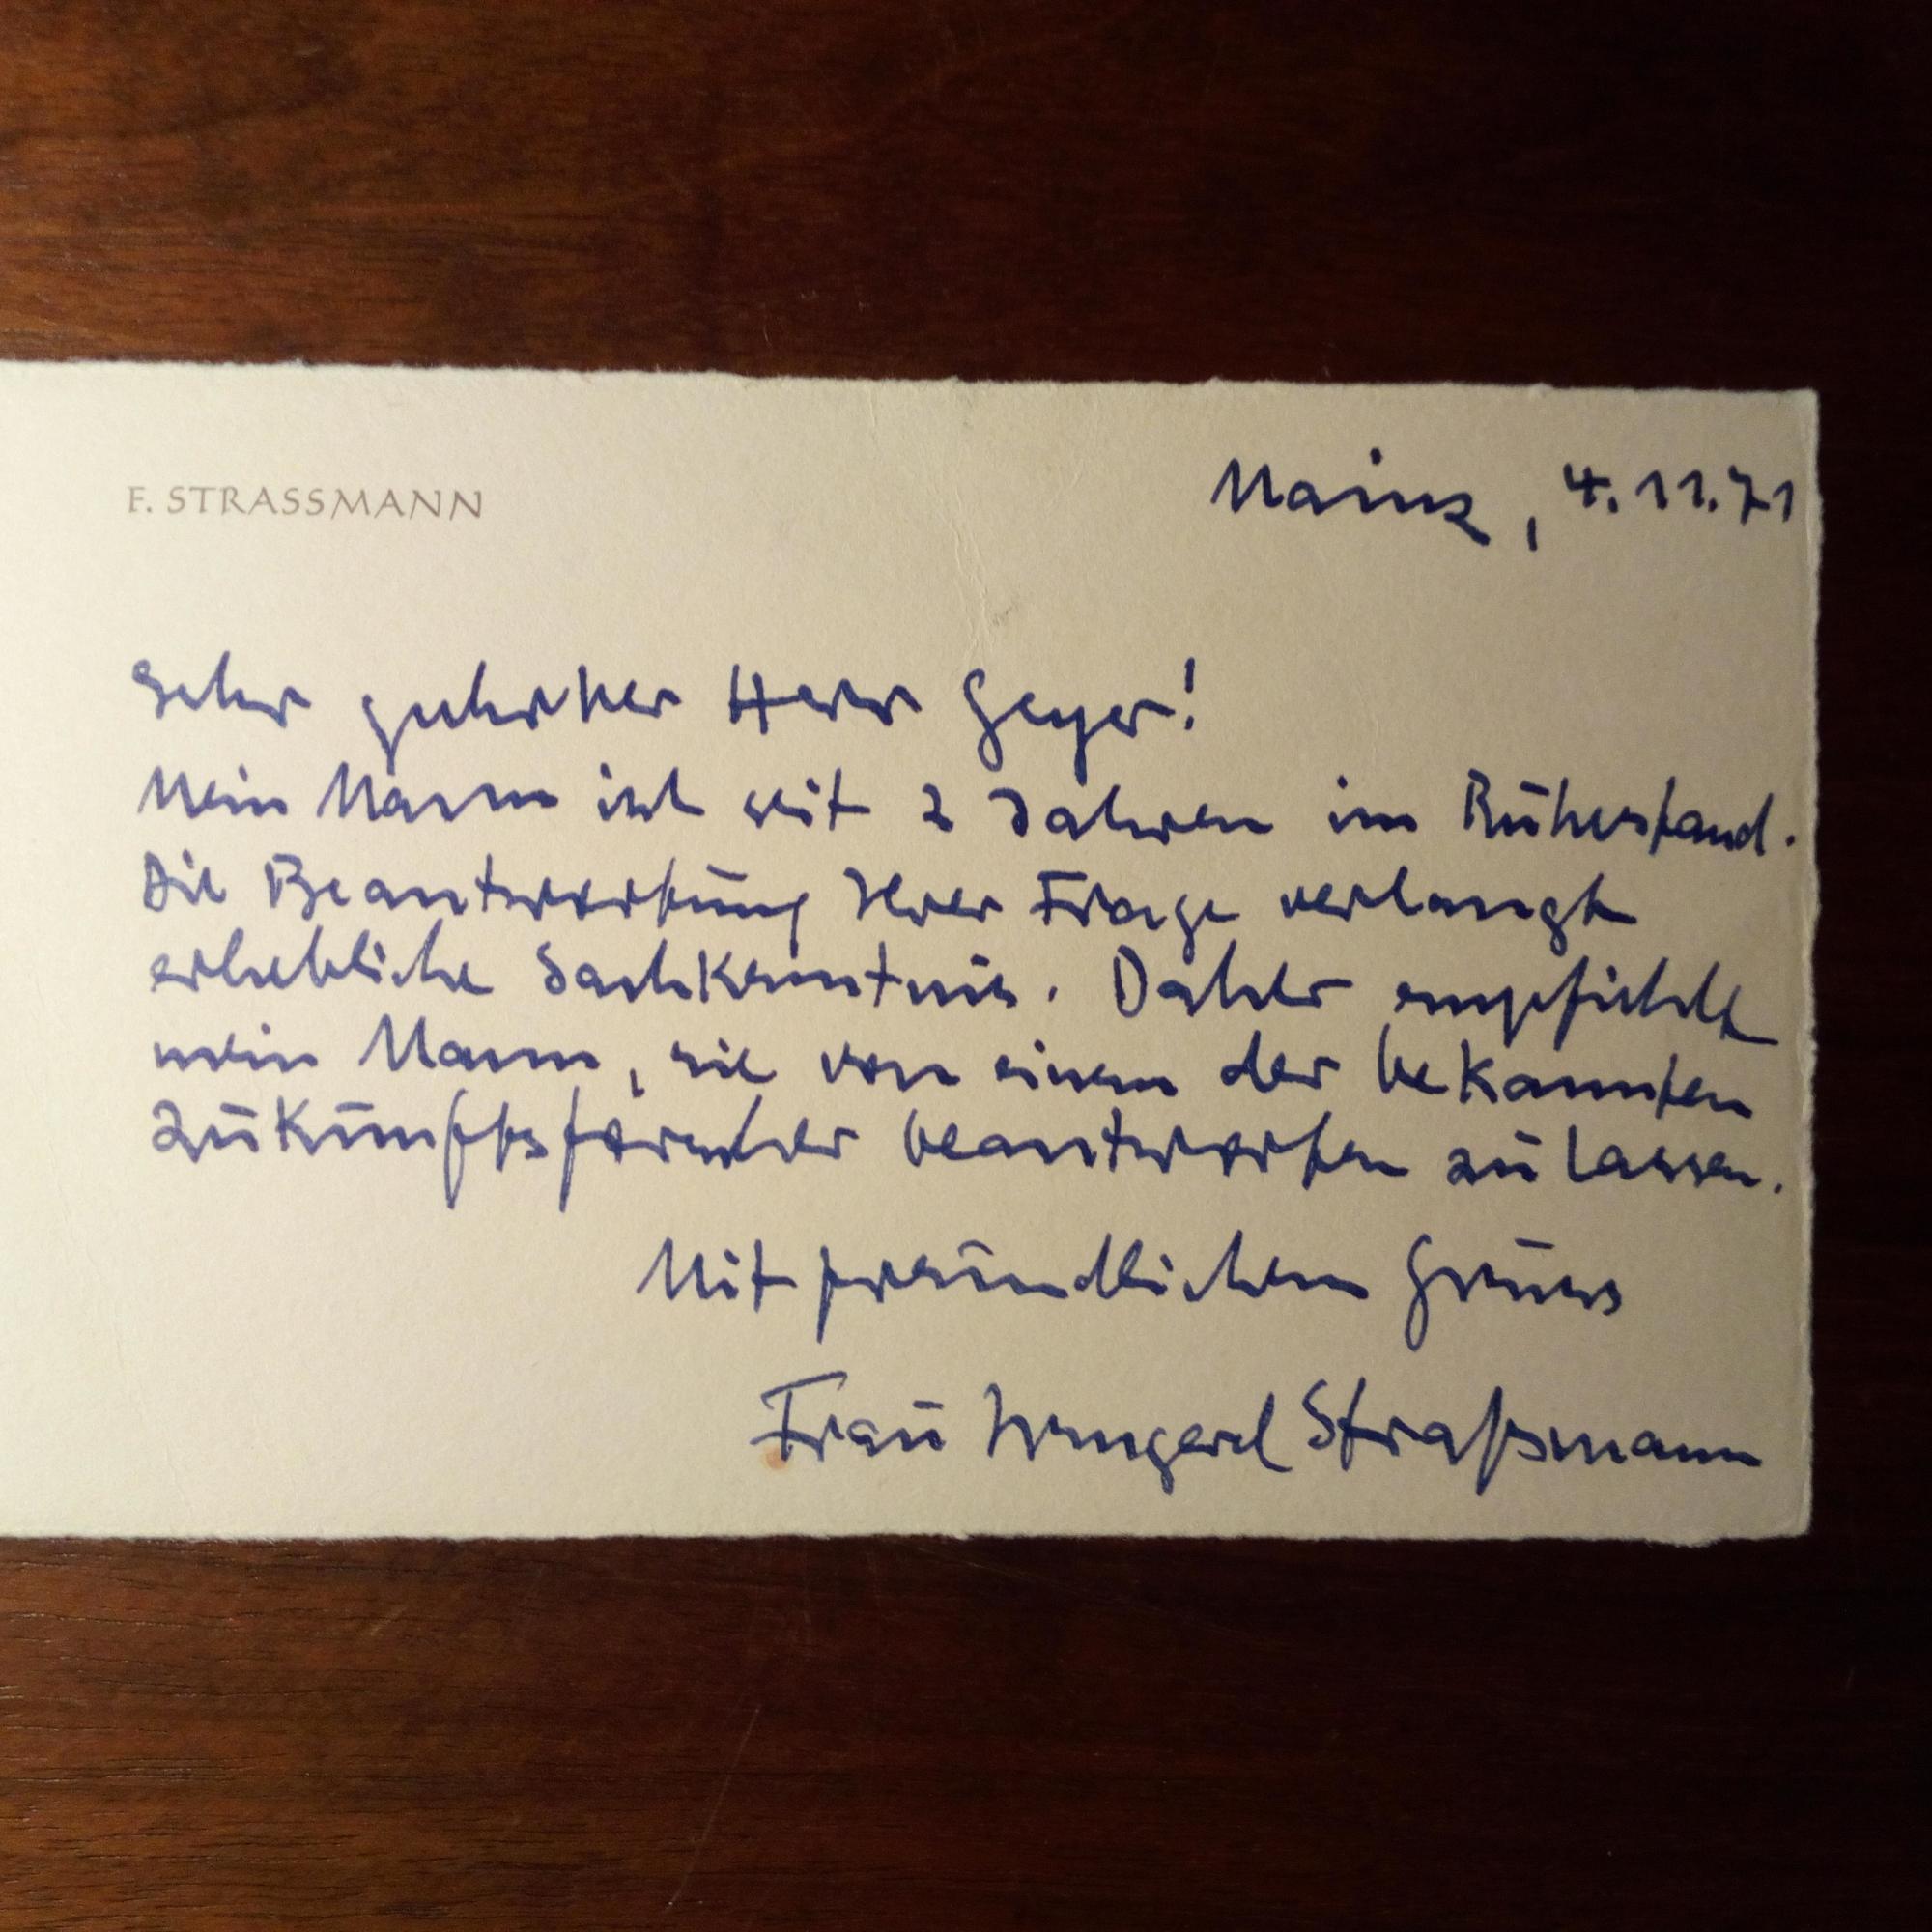 F. STRASSMANN
Mainz, 4.11.71
Sehr geehrter Herr Geyer!
Mein Mann ist seit 2 Jahren im Ruhestand.
Die Beantwortung Ihrer Frage verlangt
erhebliche Sachkenntnis. Daher empfiehlt
mein Mann, sie von einem der bekannten
Zukunftsforscher beantworten zu lassen.
Mit freundlichem Gruss
Frau Irmgard Straßmann